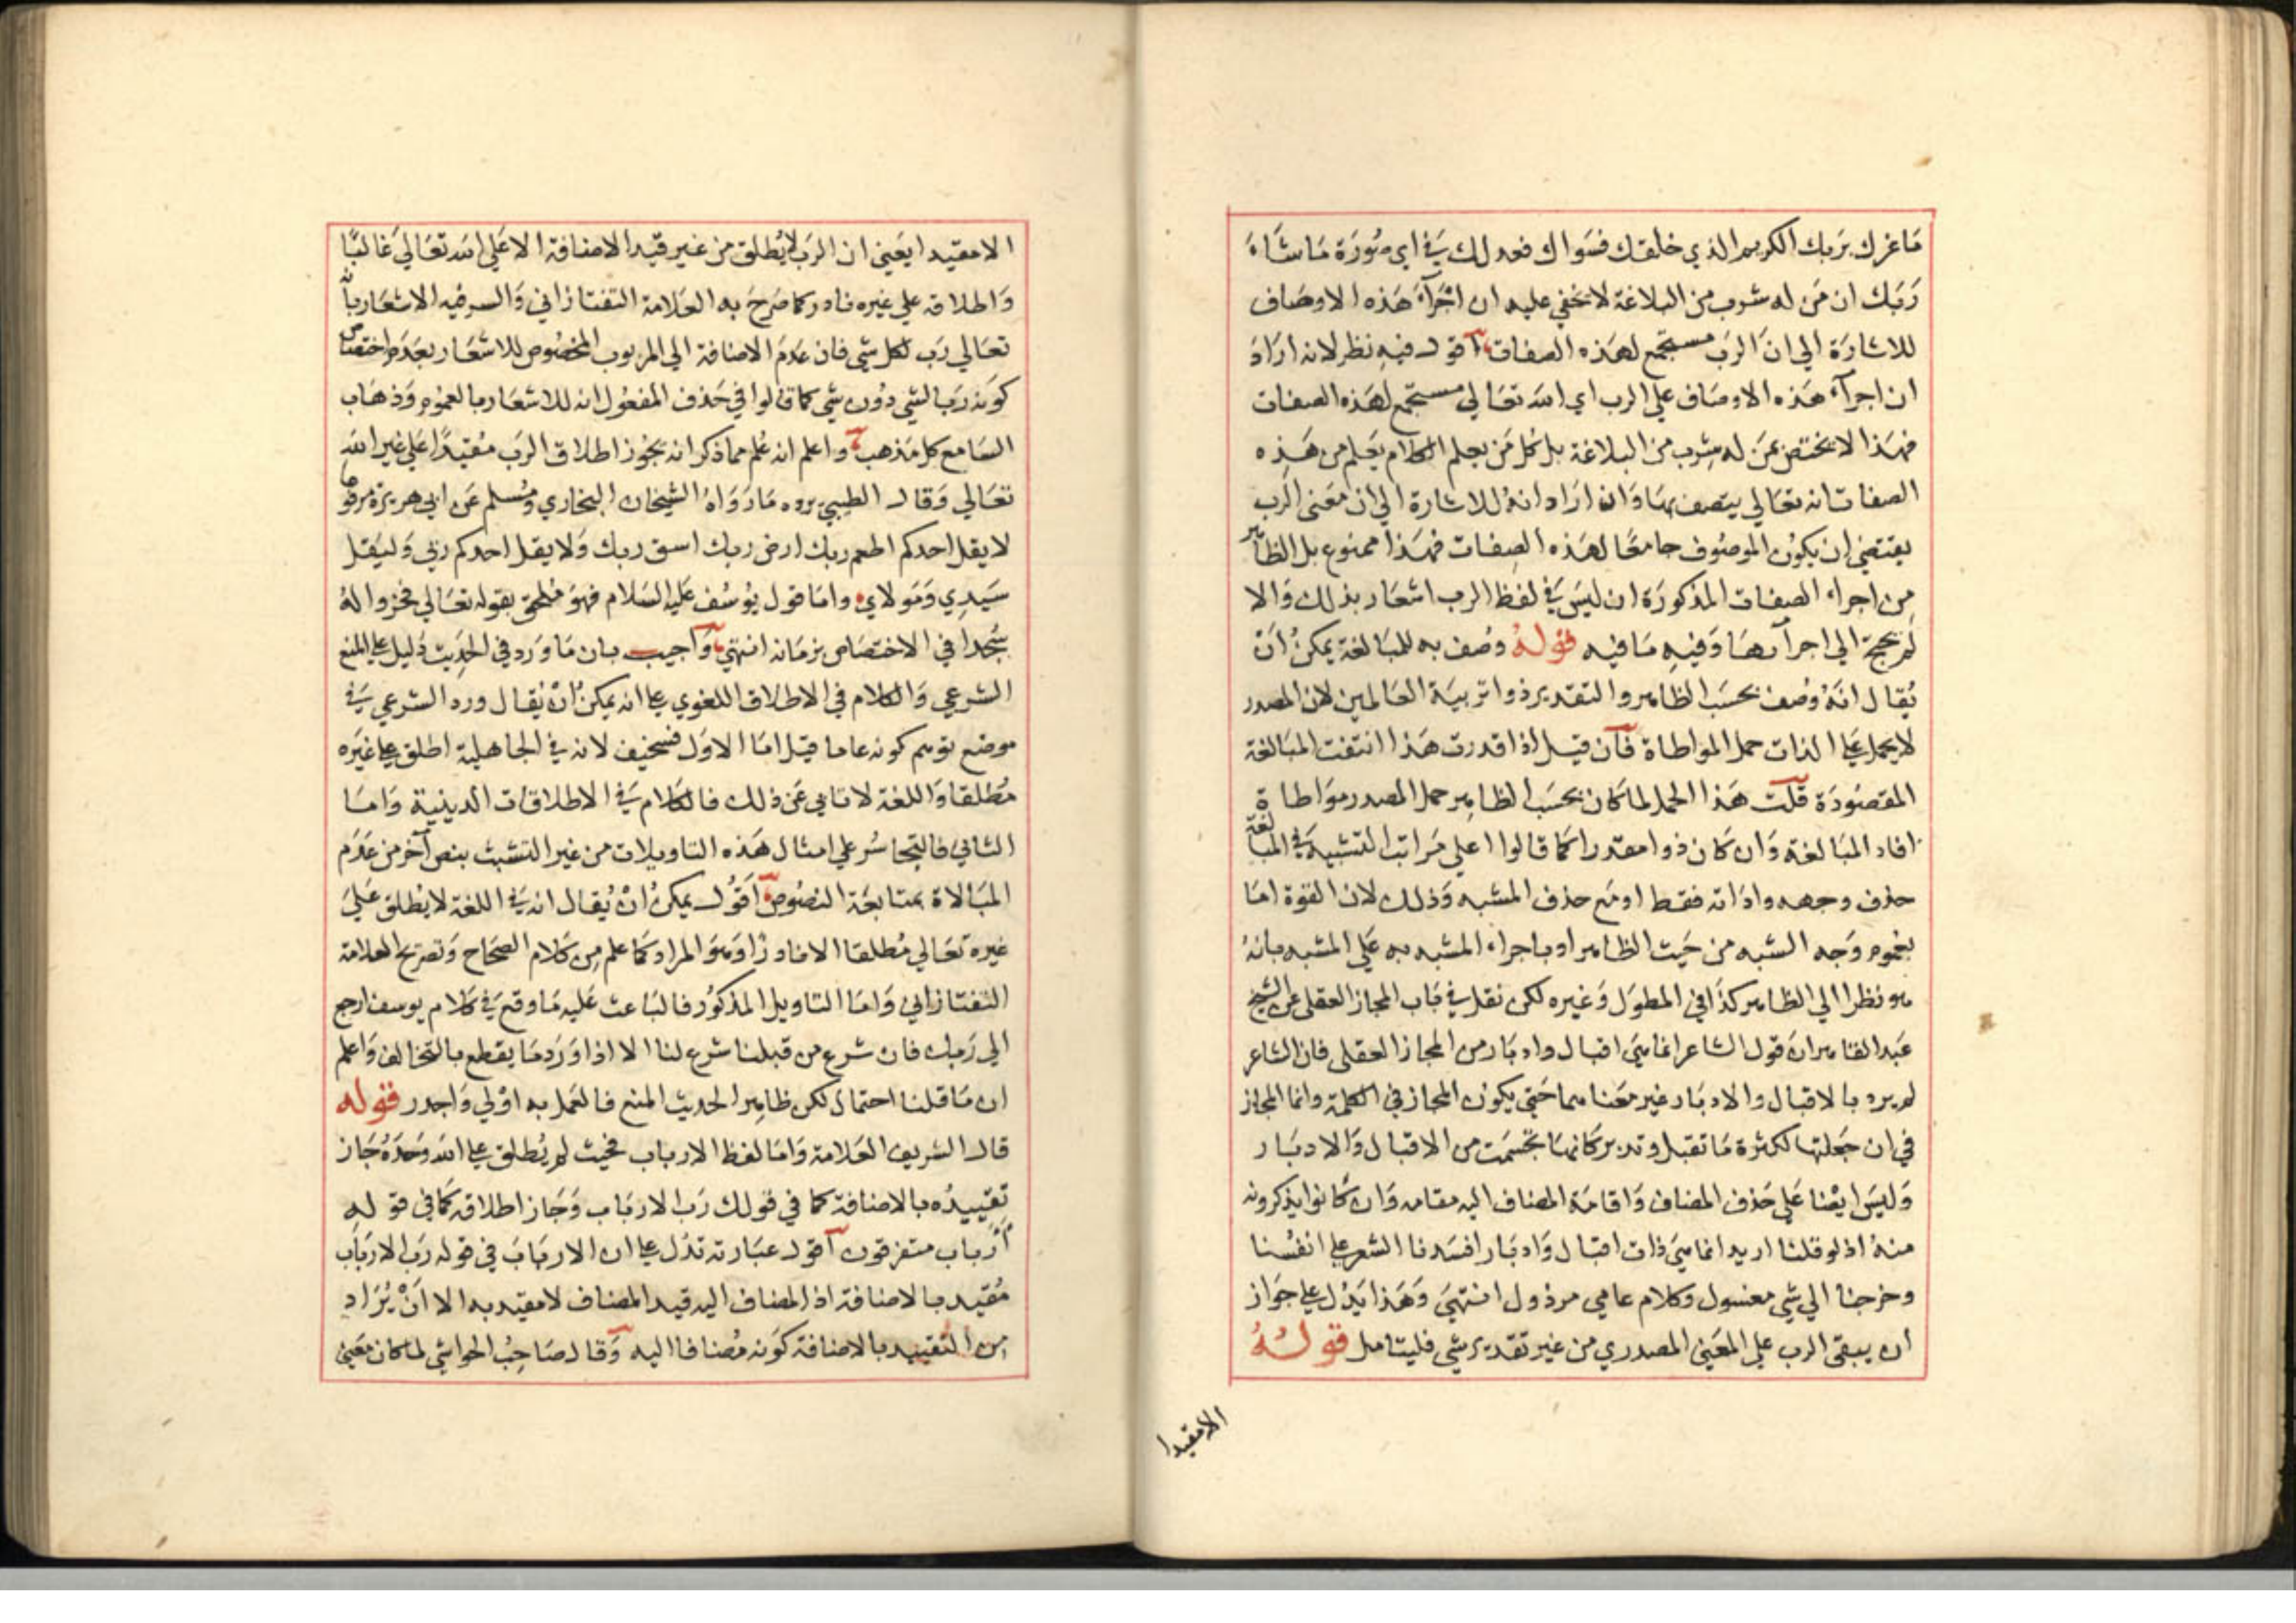 ما غرك بربك الكريم الذي خلقك فسواك فعدلك في اي صورة ما شاء
ربك ان من له شرب من البلاغة لا يخفي عليه ان اجراء هذه الاوصاف
للاشارة الي ان الرب مستجمع لهذه الصفات اقول فيه نظر لانه اراد
ان اجراء هذه الاوصاف علي الرب اي الله تعالي مستجمع لهذه الصفات
فهذا لا يختص بمن له شرب من البلاغة بل كل من يعلم الكلام يعلم من هذه
الصفات انه تعالي يتصف بها وان اراد انه للاشارة الي ان معنى الرب
يقتضي ان يكون الموصوف جامعا لهذه الصفات فهذا ممنوع بل الظاهر
من اجراء الصفات المذكورة ان ليس في لفظ الرب اشعار بذلك والا
لم يحتج الي اجرآءها وفيه ما فيه قوله وصف به للمبالغة يمكن ان
يقال انه وصف بحسب الظاهر والتقدير ذو تربية العالمين لان المصدر
لا يحمل علي الذات حمل المواطاة فان قيل اذا قدرت هذا انتفت المبالغة
المقصودة قلت هذا الحمل لما كان بحسب الظاهر حمل المصدر مواطاة
افاد المبالغة وان كان ذو مقدرا كما قالوا اعلي مراتب التشبيه في المبالغة
حذف وجهه واداته فقط او مع حذف المشبه وذلك لان القوة اما
بعموم وجه الشبه من حيث الظاهر او باجراء المشبه به علي المشبه بانه
هو نظرا الي الظاهر كذا في المطول وغيره لكن نقل في باب المجاز العقلي عن الشيخ
عبد القاهر ان قول الشاعر انما هي اقبال وادبار من المجاز العقلي فان الشاعر
لم يرد بالاقبال والادبار غير معناهما حتي يكون المجاز في الكلمة وانما المجاز
في ان جعلتها لكثرة ما تقبل وتدبر كانها تجسمت من الاقبال والادبار
وليس ايضا علي حذف المضاف واقامة المضاف اليه مقامه وان كانوا يذكرونه
منه اذ لو قلنا اريد انما هي ذات اقبال وادبار افسدنا الشعر علي انفسنا
وخرجنا الي شي مغسول وكلام عامي مرذول انتهي وهذا يدل علي جواز
ان يبقى الرب علي المعني المصدري من غير تقدير شي فليتامل قوله
الا مقيدا
الا مقيدا يعني ان الرب لا يطلق من غير قيد الاضافة الا علي الله تعالي غالبا
واطلاقه علي غيره نادر كما صرح به العلامة التفتازاني والسر فيه الاشعار بانه
تعالي رب لكل شي فان عدم الاضافة الي المربوب المخصوص للاشعار بعدم اختصاص
كونه ربا لشي دون شي كما قالوا في حذف المفعول انه للاشعار بالعموم وذهاب
السامع كل مذهب واعلم انه علم مما ذكر انه يجوز اطلاق الرب مقيدا علي غير الله
تعالي وقال الطيبي يرده ما رواه الشيخان البخاري ومسلم عن ابي هريرة مرفوعا
لا يقل احدكم اطعم ربك ارض ربك اسق ربك ولا يقل احدكم ربي وليقل
سيدي ومولاي واما قول يوسف عليه السلام فهو ملحق بقوله تعالي فخروا له
سجدا في الاختصاص بزمانه انتهي واجيب بان ما ورد في الحديث دليل علي المنع
الشرعي والكلام في الاطلاق اللغوي علي انه يمكن ان يقال ورد الشرعي في
موضع توهم كونه عاما قيل اما الاول فسخيف لانه في الجاهلية اطلق علي غيره
مطلقا واللغة لا تابي عن ذلك فالكلام في الاطلاقات الدينية واما
الثاني فالتجاسر علي امثال هذه التاويلات من غير التشبث بنص آخر من عدم
المبالاة بمتابعة النصوص اقول يمكن ان يقال انه في اللغة لا يطلق علي
غيره تعالي مطلقا الا نادرا وهو المراد كما علم من كلام الصحاح وتصريح العلامة
التفتازاني واما التاويل المذكور فالباعث عليه ما وقع في كلام يوسف ارجع
الي ربك فان شرع من قبلنا شرع لنا الا اذا ورد ما يقطع بالتخالف واعلم
ان ما قلنا احتمال لكن ظاهر الحديث المنع فالعمل به اولي واجدر قوله
قال الشريف العلامة واما لفظ الارباب فحيث لم يطلق علي الله وحده جاز
تقييده بالاضافة كما في قولك رب الارباب وجاز اطلاقه كما في قوله
أأرباب متفرقون اقول عبارته تدل علي ان الارباب في قوله رب الارباب
مقيد بالاضافة اذ المضاف اليه قيد المضاف لا مقيد به الا ان يراد
من التقييد بالاضافة كونه مضافا اليه وقال صاحب الحواشي لما كان معني